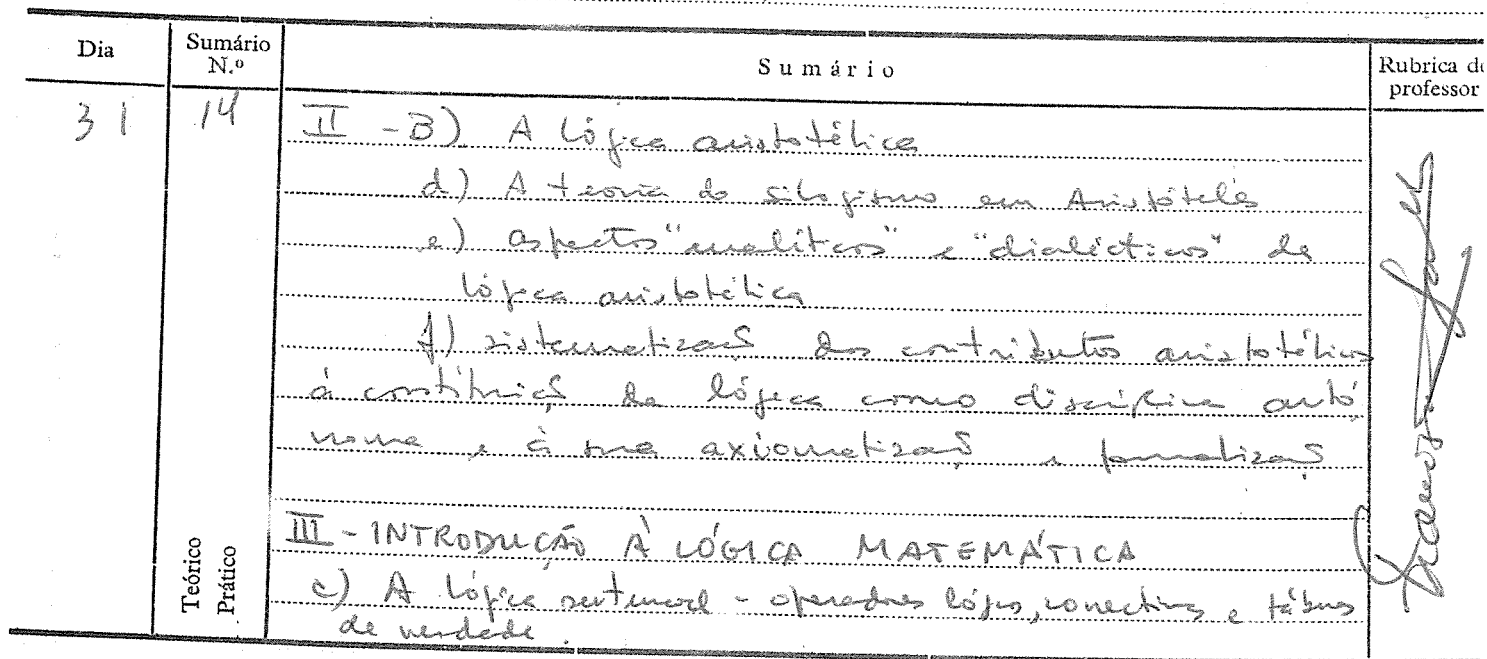 Dia
Sumário N.º
Sumário
Rubrica do professor
31
14
II - B) A lógica aristotélica
d) A teoria do silogismo em Aristóteles
e) aspectos "analíticos" e "dialécticos" da
lógica aristotélica
f) sistematização dos contributos aristotélicos
à constituição da lógica como disciplina autó
noma e à sua axiomatização e formalização
III - INTRODUÇÃO À LÓGICA MATEMÁTICA
c) A lógica sentencial - operadores lógicos, conectivas e tábuas
de verdade.
Teórico
Prático